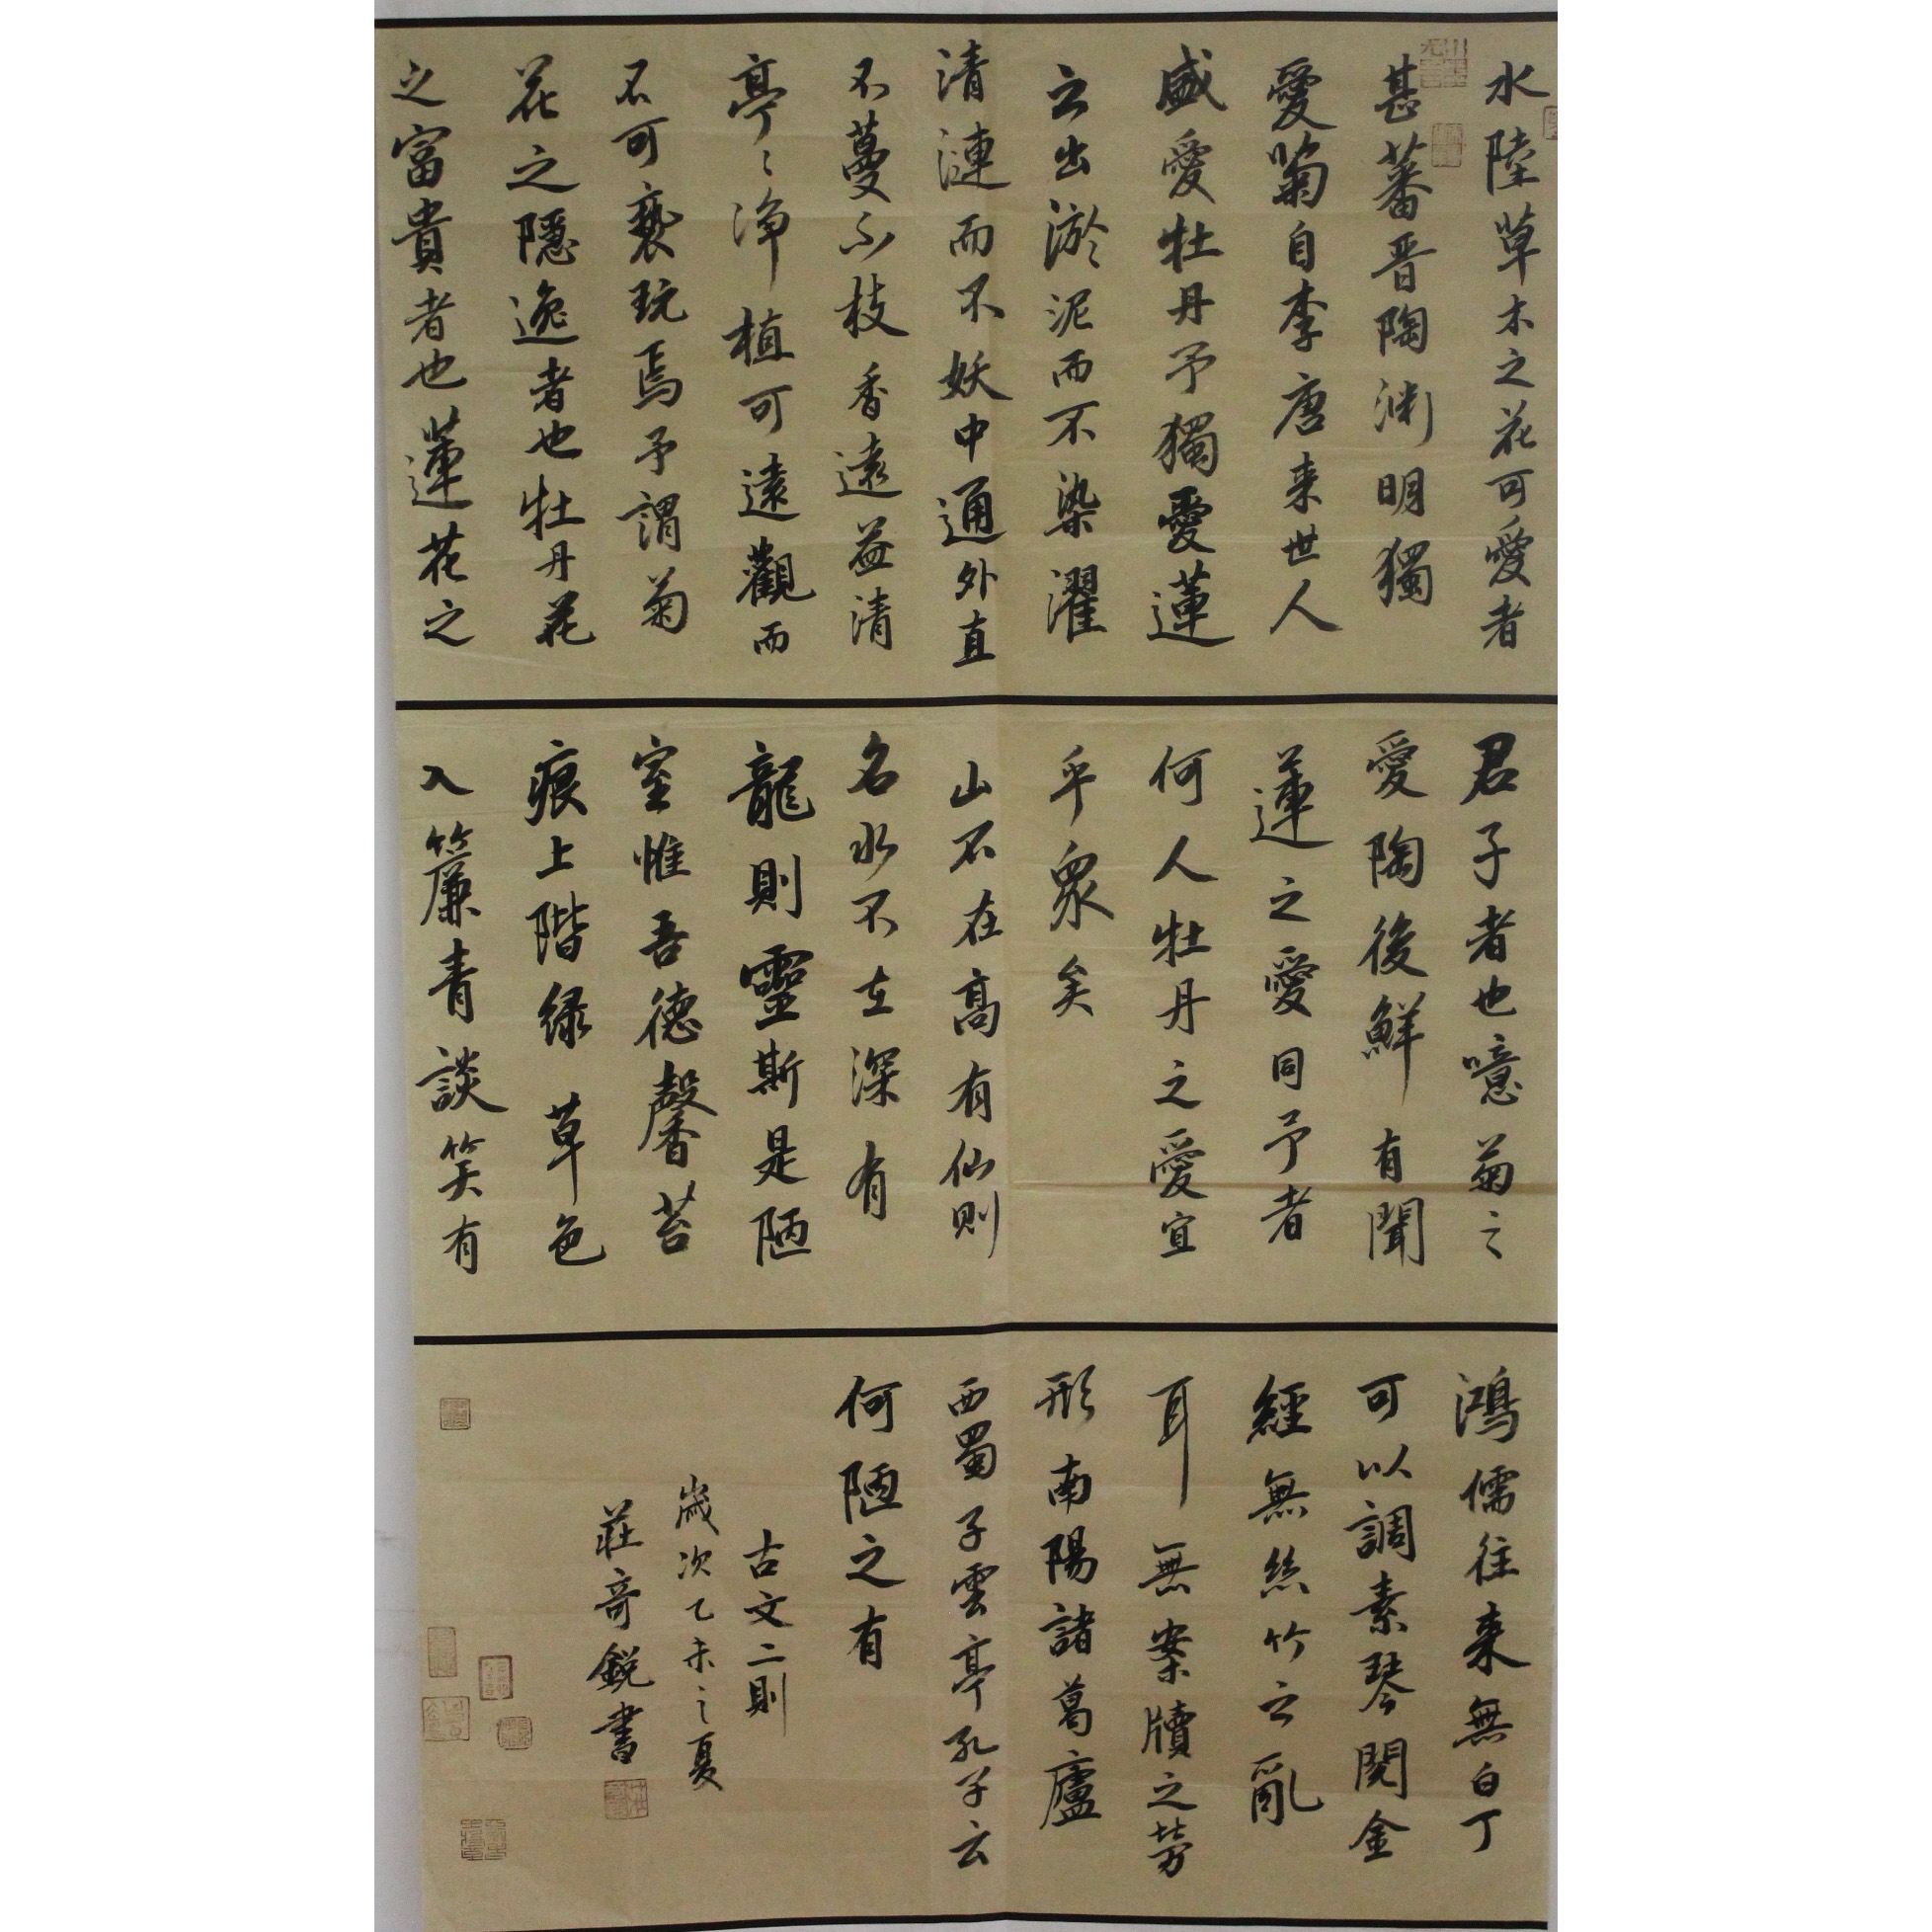 水陸草木之花可愛者
甚蕃晋陶渊明獨
愛菊自李唐来世人
盛愛牡丹予獨愛蓮
之出淤泥而不染濯
清漣而不妖中通外直
不蔓不枝香遠益清
亭〻净植可遠觀而
不可褻玩焉予謂菊
花之隱逸者也牡丹花
之富貴者也蓮花之
君子者也噫菊之
愛陶後鮮有聞
蓮之愛同予者
何人牡丹之愛宜
乎衆矣
山不在高有仙則
名水不在深有
龍則靈斯是陋
室惟吾德馨苔
痕上階緑草色
入簾青談笑有
鴻儒往来無白丁
可以調素琴閱金
經無絲竹之亂
耳無案牘之勞
形南陽諸葛廬
西蜀子雲亭孔子云
何陋之有
古文二則
歲次乙未之夏
莊奇鋭書